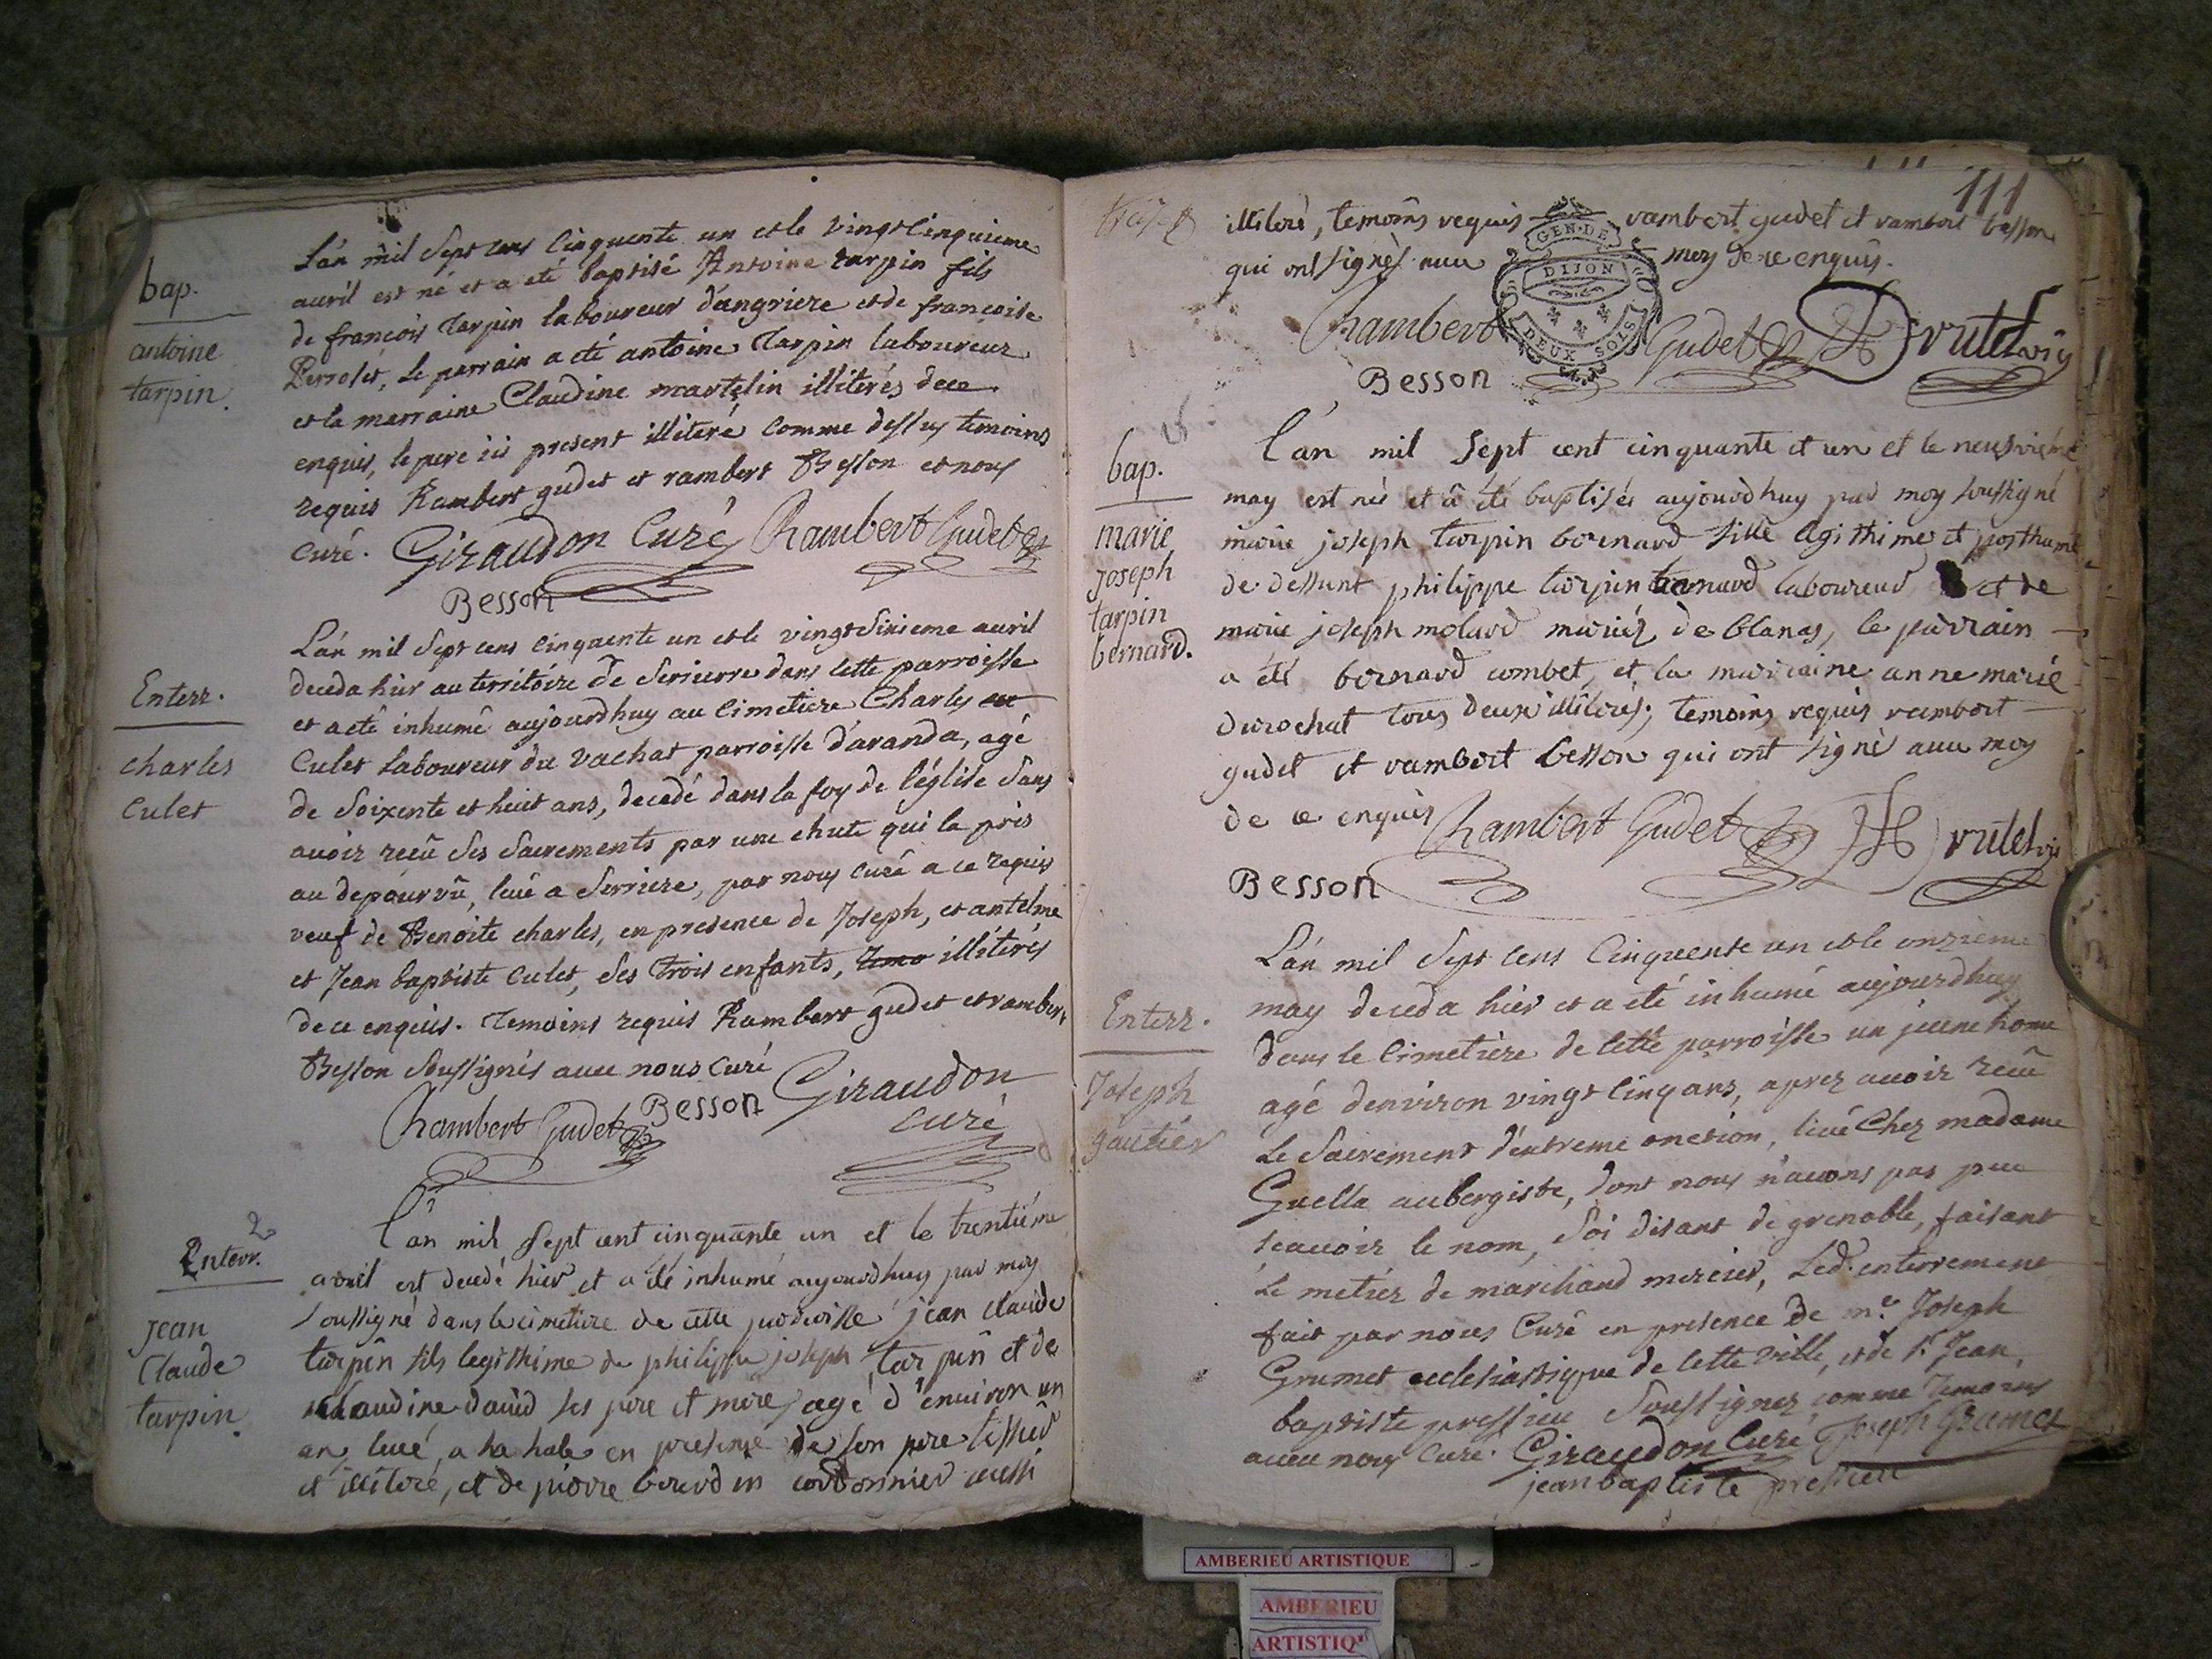 bap.
antoine
tarpin.
L'án mil Sept cens Cinquente un et le vingt Cinquieme
auril est né et a eté baptisé Antoine tarpin fils
de françois tarpin laboureur d'angriere et de françoise
Perrolet, Le parrain a eté antoine tarpin laboureur
et la marraine Claudine martelin illiterés de ce
enquis, le pere ici present illiteré comme dessus temoins
requis Rambert gudet et rambert Besson et nous
Curé. Giraudon Curé Rambert Gudet
Besson
Enterr.
charles
Culet
L'án mil Sept cens Cinquente un et le vingt Sixieme auril
deceda hier au territoire de Serrierre dans cette parroisse
et a eté inhumé aujourdhuy au Cimetiere Charles
Culet Laboureur du vachat parroisse d'aranda, agé
de Soixente et huit ans, decedé dans la foy de l'église Sans
auoir reçû Ses Sacrements par une chute qui la pris
au depourvû, leué a Serriere, par nous curé a ce requis
veuf de Benoite charles, en presence de Joseph, et antelme
et Jean baptiste Culet, Ses trois enfants, illiterés
de ce enquis. Temoins requis Rambert gudet et rambert
Besson Soussignés auec nous Curé
Giraudon
curé
Rambert Gudet Besson
2
Enterr.
jean
Claude
tarpin.
l'an mil Sept cent cinquante un et le trentiéme
avril est decedé hier et a été inhumé aujourdhuy par moy
soussigné dans le cimetiere de cette parroisse jean claude
tarpin fils legithime de philippe joseph tarpin et de
claudine david ses pere et mere, agé d'environ un
an, leué, a la hale en presence de son pere tissier
et illiteré, et de pierre berard in cordonnier aussi
111
illiteré, temoins requis rambert gudet et rambert besson
qui ont signés avec moy de ce enquis.
GEN·DE
DIJON
DEUX SOLS
Rambert Gudet vutel vic
Besson
bap.
marie
joseph
tarpin
bernard.
l'an mil Sept cent cinquante et un et le neufvieme
may est née et â été baptisée aujourdhuy par moy soussigné
marie joseph tarpin bernard fille legithime et posthume
de deffunt philippe tarpin bernard laboureur et de
marie joseph molard mariéz de blanas, le parrain
a été bernard combet, et la marraine anne marie
durochat tous deux illiterés; temoins requis rambert
gudet et rambert besson qui ont signé avec moy
de ce enquis Rambert Gudet vutel vic
Besson
Enterr.
Joseph
gautier
L'án mil Sept cens Cinquente un et le onzieme
may deceda hier et a eté inhumé aujourdhuy
dans le Cimetière de Cette parroisse un jeune home
agé denviron vingt Cinq ans, aprez auoir reçû
Le Sacrement d'extreme onction, leué Chez madame
Guella aubergiste, dont nous n'auons pas peu
scauoir le nom, Soi disant de grenoble, faisant
Le metier de marchand mercier, Led. enterrement
fait par nous Curé en presence de mre. Joseph
Grumet ecclesiastique de Cette ville, et de sr. Jean
baptiste pressieu Soussignez comme temoins
auec nous Curé. Giraudon Curé Joseph Grumet
jean baptiste pressieu
AMBERIEU ARTISTIQUE
AMBERIEU
ARTISTIQ